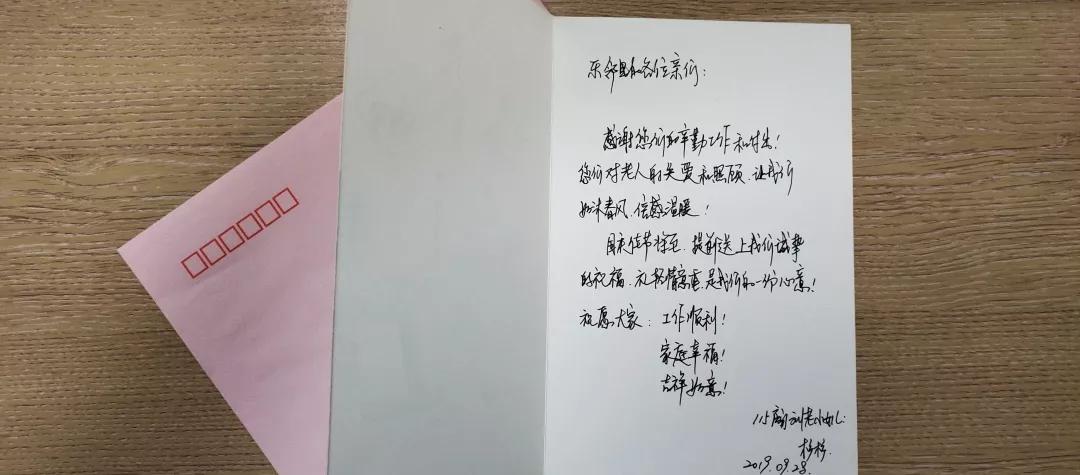 乐邻里的各位亲们：
感谢您们的辛勤工作和付出！
您们对老人的关爱和照顾，让我们
如沐春风，倍感温暖！
国庆佳节将至，提前送上我们诚挚
的祝福，礼轻情意重，是我们的一份心意！
祝愿大家：工作顺利！
家庭幸福！
吉祥如意！
115房刘老小女儿：
2019.09.28.